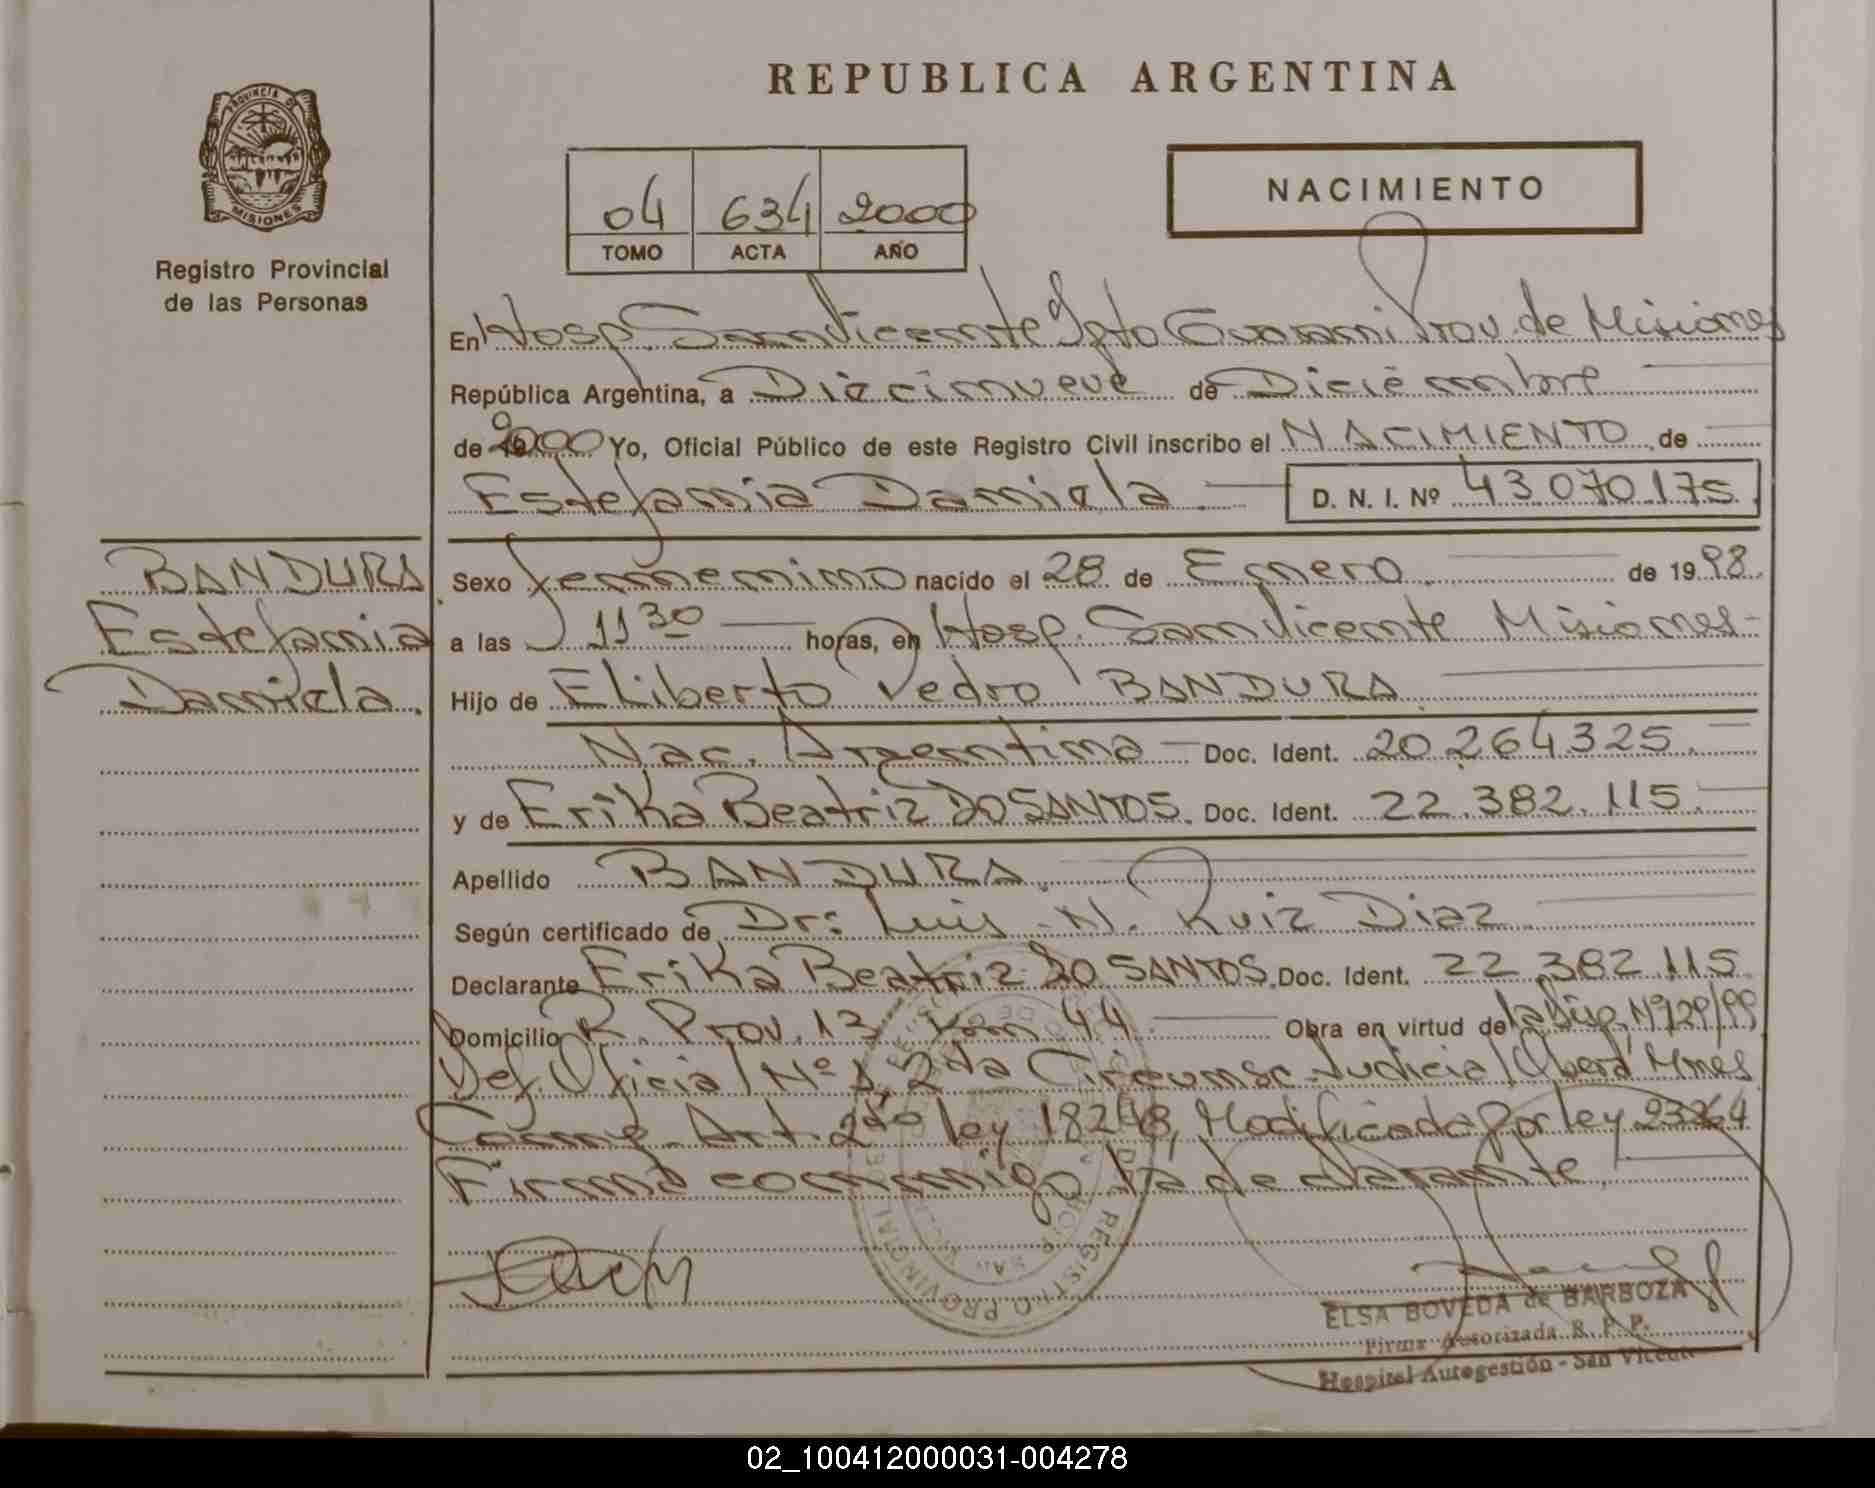 REPUBLICA ARGENTINA
PROVINCIA DE
MISIONES
Registro Provincial
de las Personas
04 634 2000
TOMO ACTA AÑO
NACIMIENTO
En Hosp. San Vicente Dpto Guarani Prov. de Misiones
República Argentina, a Diecinueve de Diciembre
de 2000 Yo, Oficial Público de este Registro Civil inscribo el NACIMIENTO de
Estefania Daniela D. N. I. Nº 43070175
BANDURA
Estefania
Daniela.
Sexo femenino nacido el 28 de Enero de 1998.
a las 11 30 horas, en Hosp. San Vicente Misiones-
Hijo de Eliberto Pedro BANDURA
Nac. Argentina Doc. Ident. 20.264325.
y de Erika Beatriz DO SANTOS. Doc. Ident. 22.382.115.
Apellido BANDURA.
Según certificado de Dr: Luis N. Ruiz Diaz
Declarante Erika Beatriz DO SANTOS. Doc. Ident. 22.382.115
Domicilio R. Prov. 13 Km 44 Obra en virtud de la Nº 729/99
Def. Oficial Nº 1 2da Circunsc. Judicial Oberá Mnes
Conf. Art. 2do ley 18248, Modificado Por ley 23264
Firma conmigo la declarante.
REGISTRO PROVINCIAL DE
ELSA BOVEDA de BARBOZA
Firma Autorizada R. P. P.
Hospital Autogestión - San Vicente
02_100412000031-004278